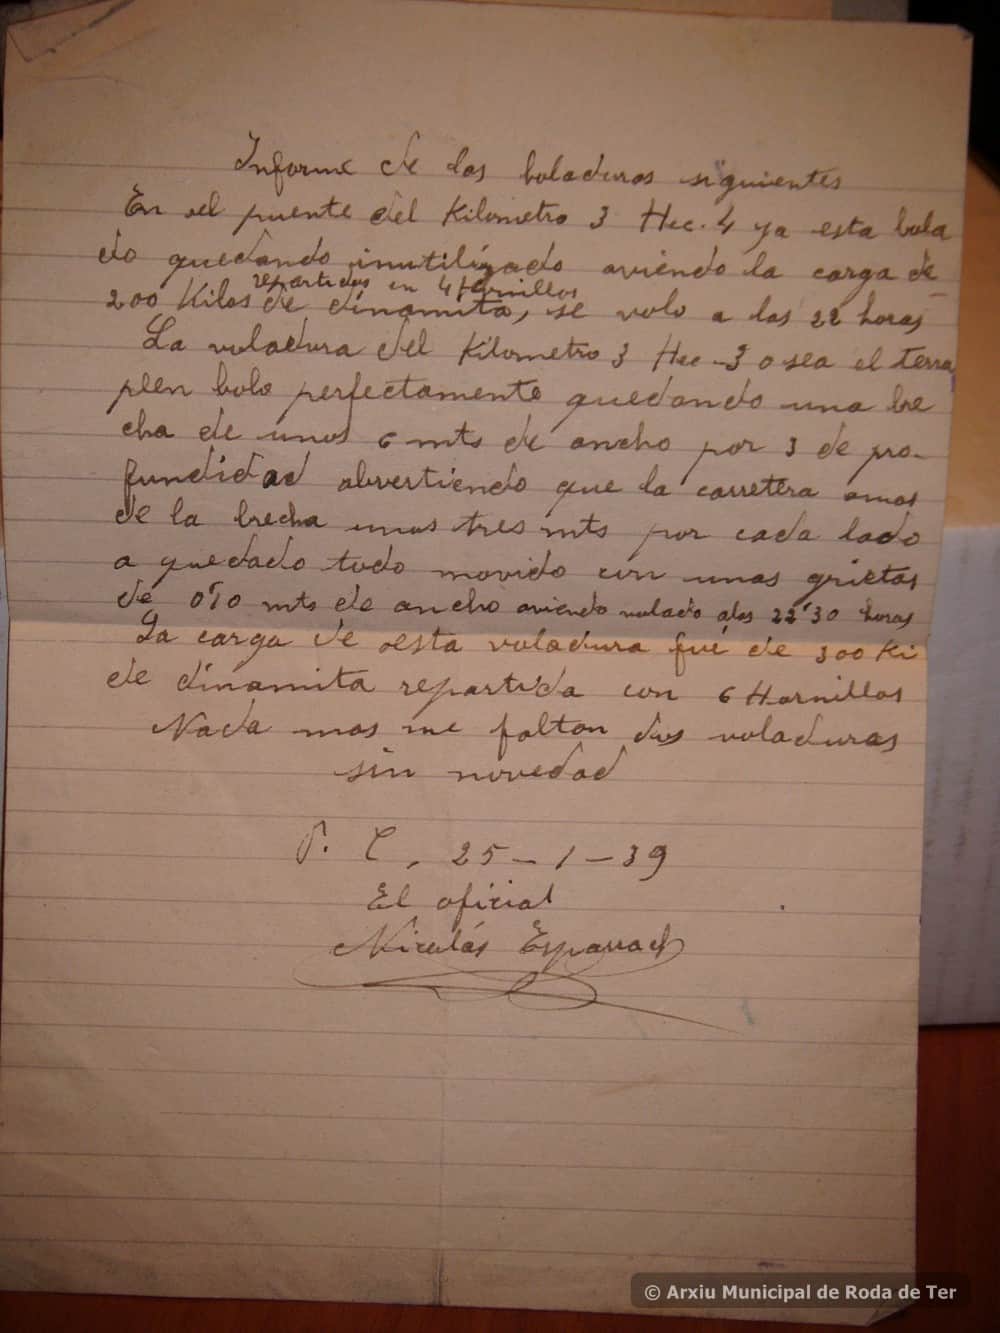 Informe de las boladuras siguientes
En el puente del Kilometro 3 Hec. 4 ya esta bola
do quedando inutilizado aviendo la carga de
repartidos en 4 Hornillos
200 Kilos de dinamita, se volo a las 22 horas
La voladura del Kilometro 3 Hec - 3 o sea el terra
plen bolo perfectamente quedando una bre
cha de unos 6 mts de ancho por 3 de pro-
fundidad abvertiendo que la carretera amas
de la brecha unos tres mts por cada lado
a quedado todo movido con unas grietas
de 0'10 mts de ancho aviendo volado alas 22'30 horas
La carga de esta voladura fué de 300 Ki
de dinamita repartida con 6 Hornillos
Nada mas me faltan dos voladuras
sin novedad
P. C. 25-1-39
El oficial
Nicolás
© Arxiu Municipal de Roda de Ter